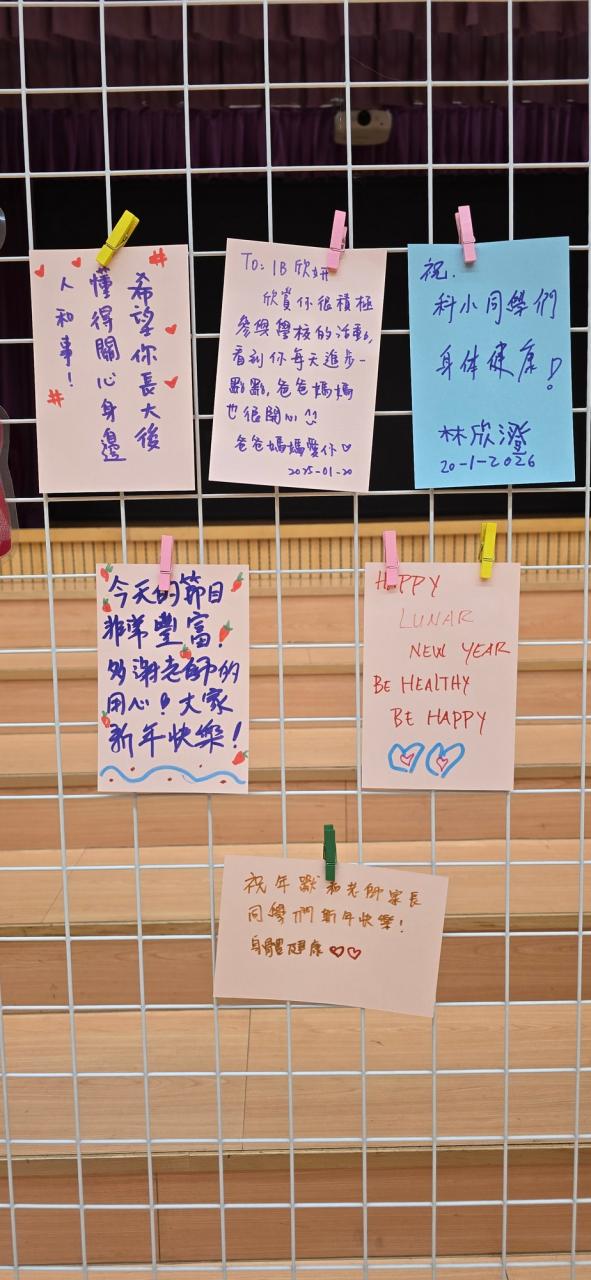 希望你長大後
懂得關心身邊
人和事！
To: 1B 欣妍
欣賞你很積極
參與學校的活動，
看到你每天進步一
點點，爸爸媽媽
也很開心
爸爸媽媽愛你
2025-01-20
祝．
科小同學們
身体健康！
林欣澄
20-1-2026
今天的節目
非常豐富！
多謝老師的
用心！大家
新年快樂！
HAPPY
LUNAR
NEW YEAR
BE HEALTHY
BE HAPPY
祝各老師家長
同學們新年快樂！
身體健康